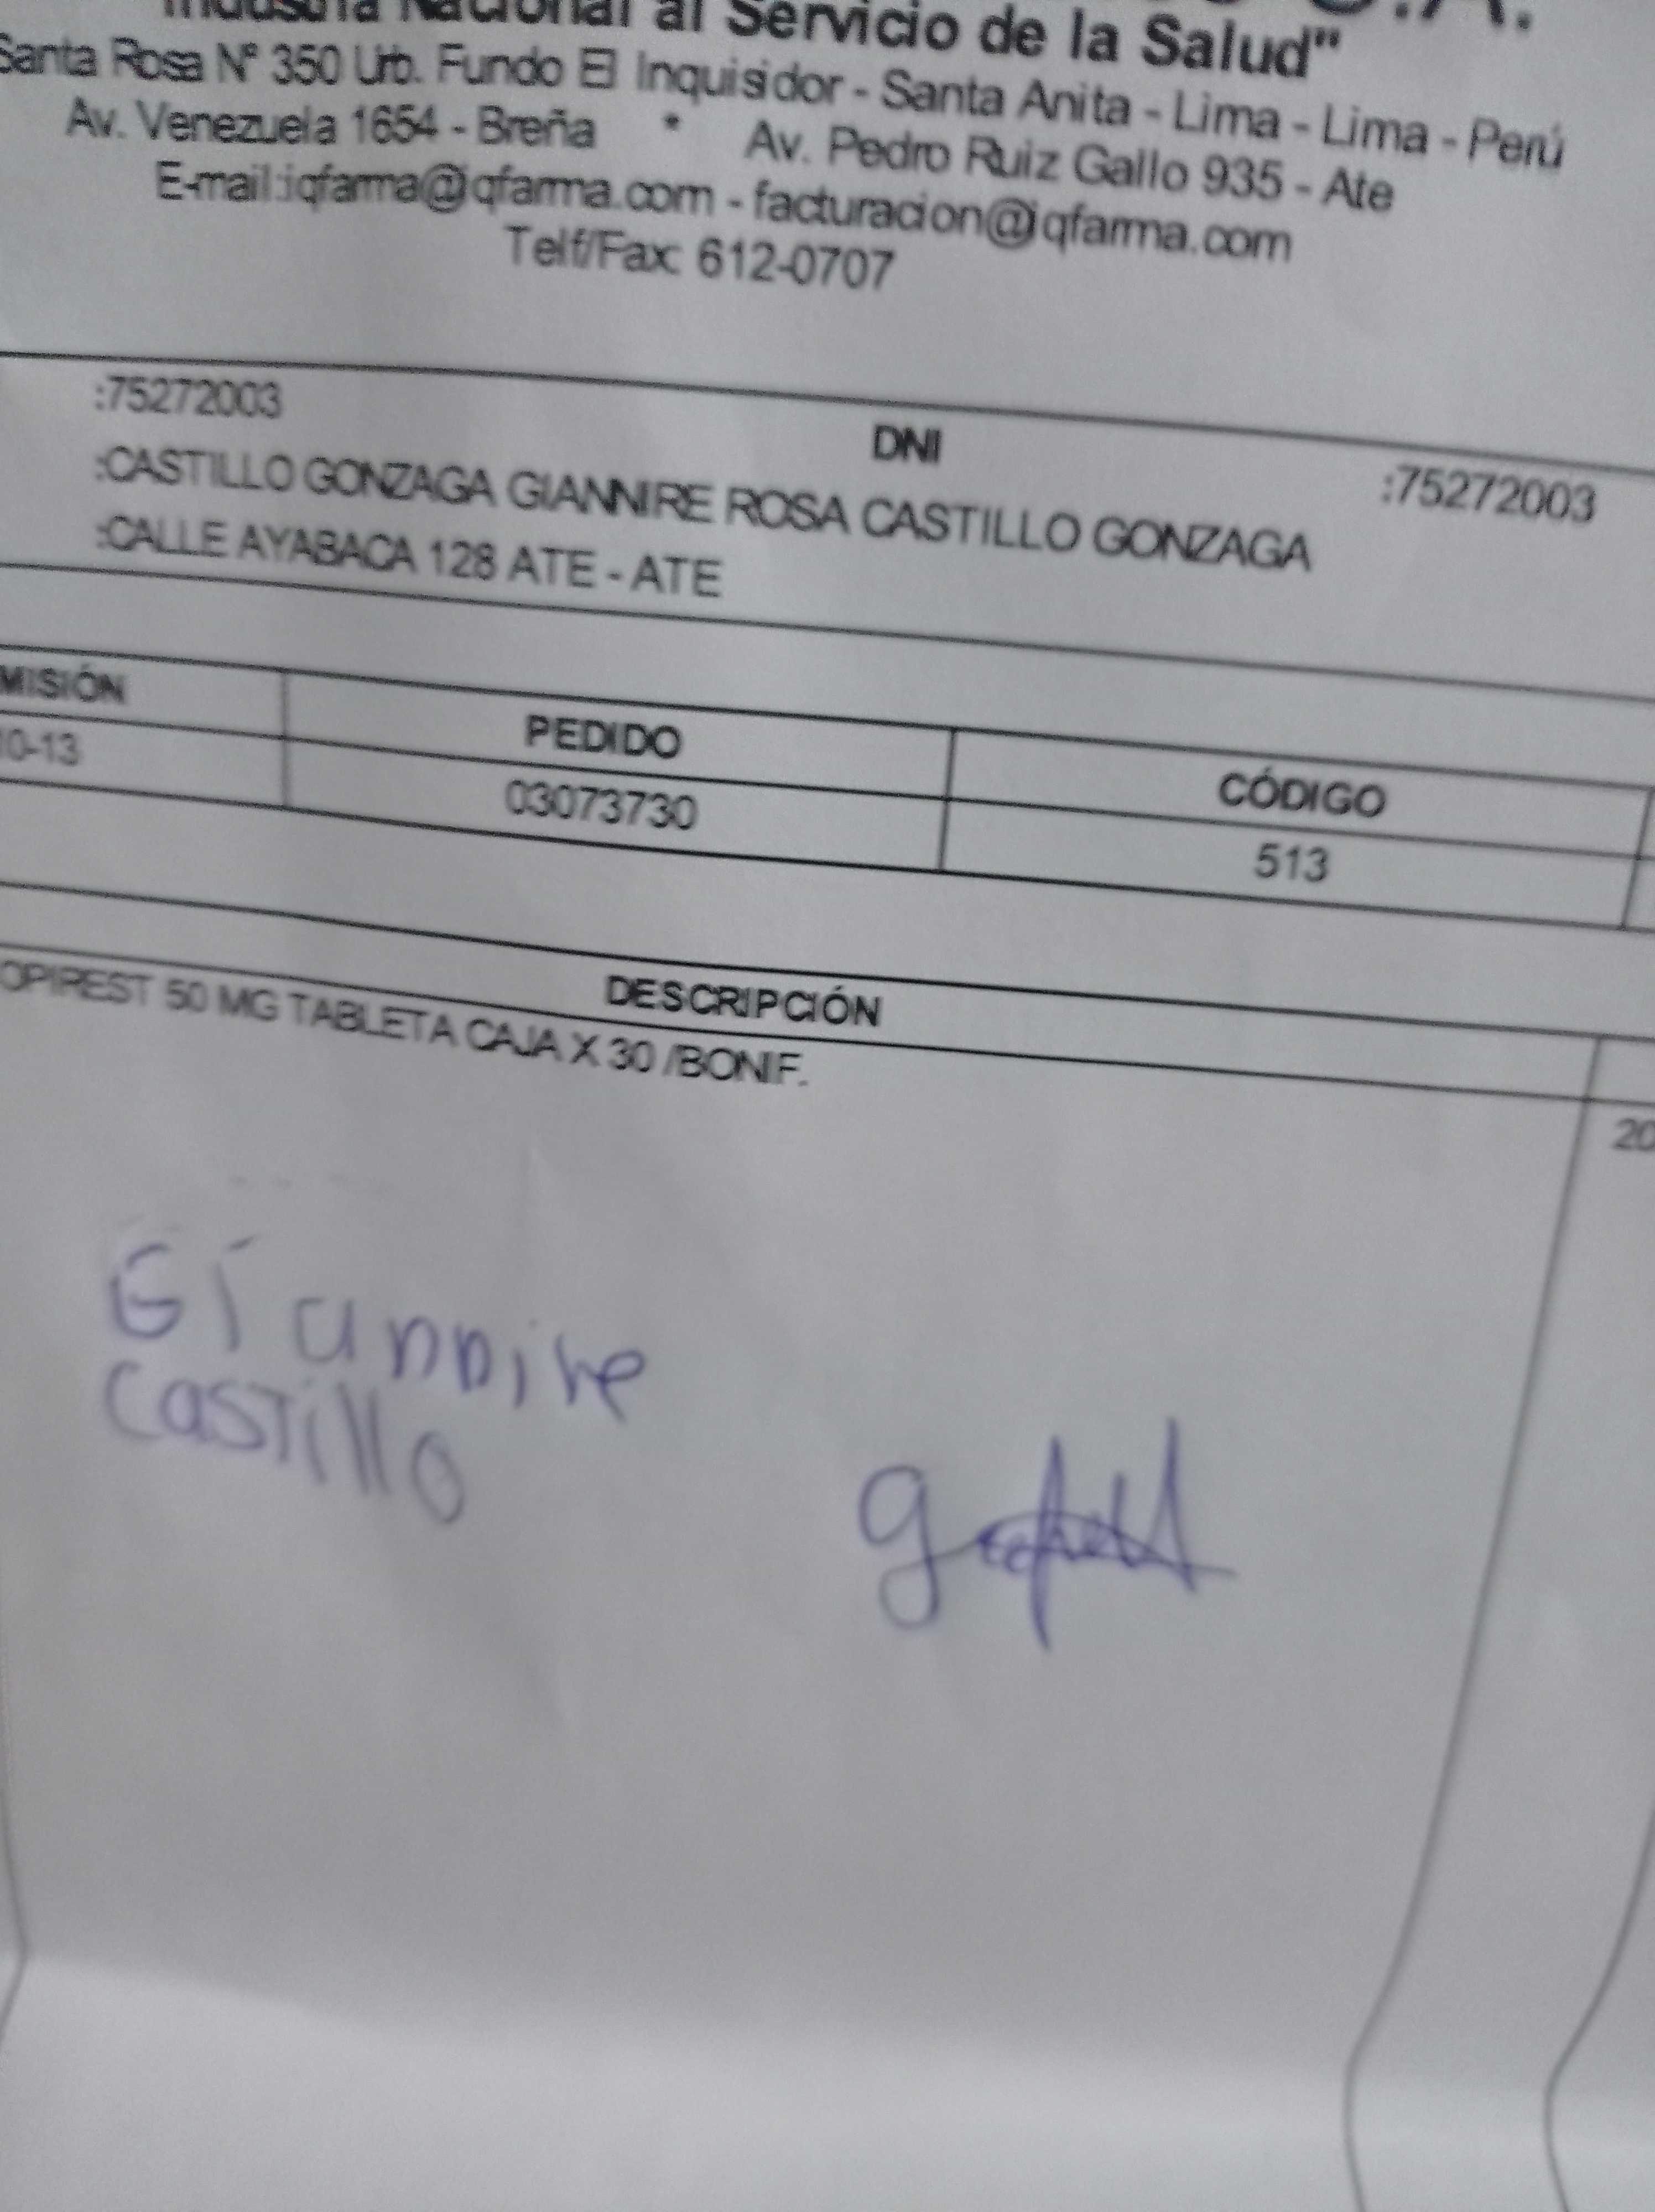 Nacional al Servicio de la Salud"
Santa Rosa N° 350 Urb. Fundo El Inquisidor - Santa Anita - Lima - Lima - Perú
Av. Venezuela 1654 - Breña * Av. Pedro Ruiz Gallo 935 - Ate
E-mail:iqfarma@iqfarma.com - facturacion@iqfarma.com
Telf/Fax: 612-0707
:75272003 DNI :75272003
:CASTILLO GONZAGA GIANNIRE ROSA CASTILLO GONZAGA
:CALLE AYABACA 128 ATE - ATE
MISIÓN PEDIDO CÓDIGO
10-13 03073730 513
DESCRIPCIÓN
OPIREST 50 MG TABLETA CAJA X 30 /BONIF. 20
Giannire
Castillo